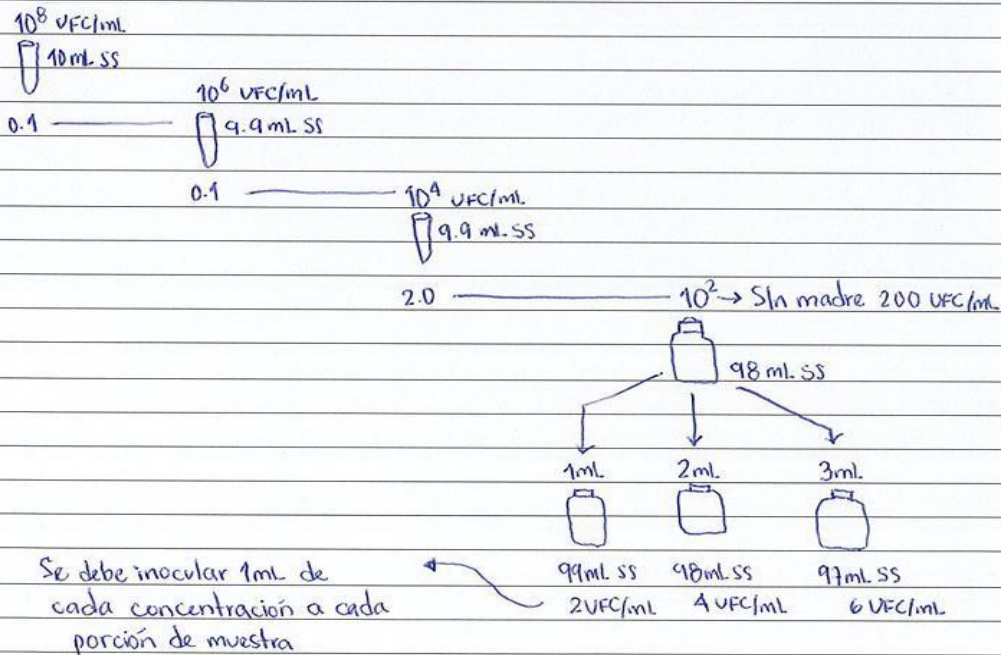 10⁸ UFC/mL
10 mL SS
10⁶ UFC/mL
0.1
9.9 mL SS
0.1
10⁴ UFC/mL
9.9 mL SS
2.0
10² → Sln madre 200 UFC/mL
98 mL SS
1mL
2mL
3mL
99mL SS
98mL SS
97mL SS
2UFC/mL
4 UFC/mL
6 UFC/mL
Se debe inocular 1mL de
cada concentración a cada
porción de muestra